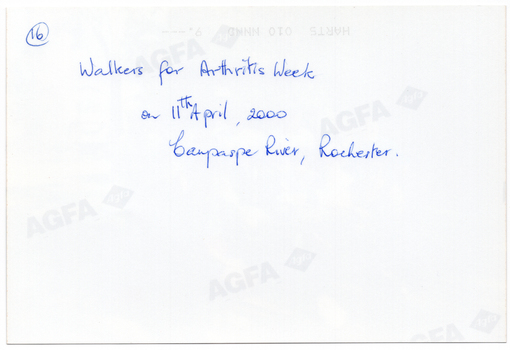 16
HARTS 010 NNNN 91----
AGFA
Walkers for Arthritis Week
on 11th April, 2000
Campaspe River, Rochester.
AGFA
AGFA
AGFA
AGFA